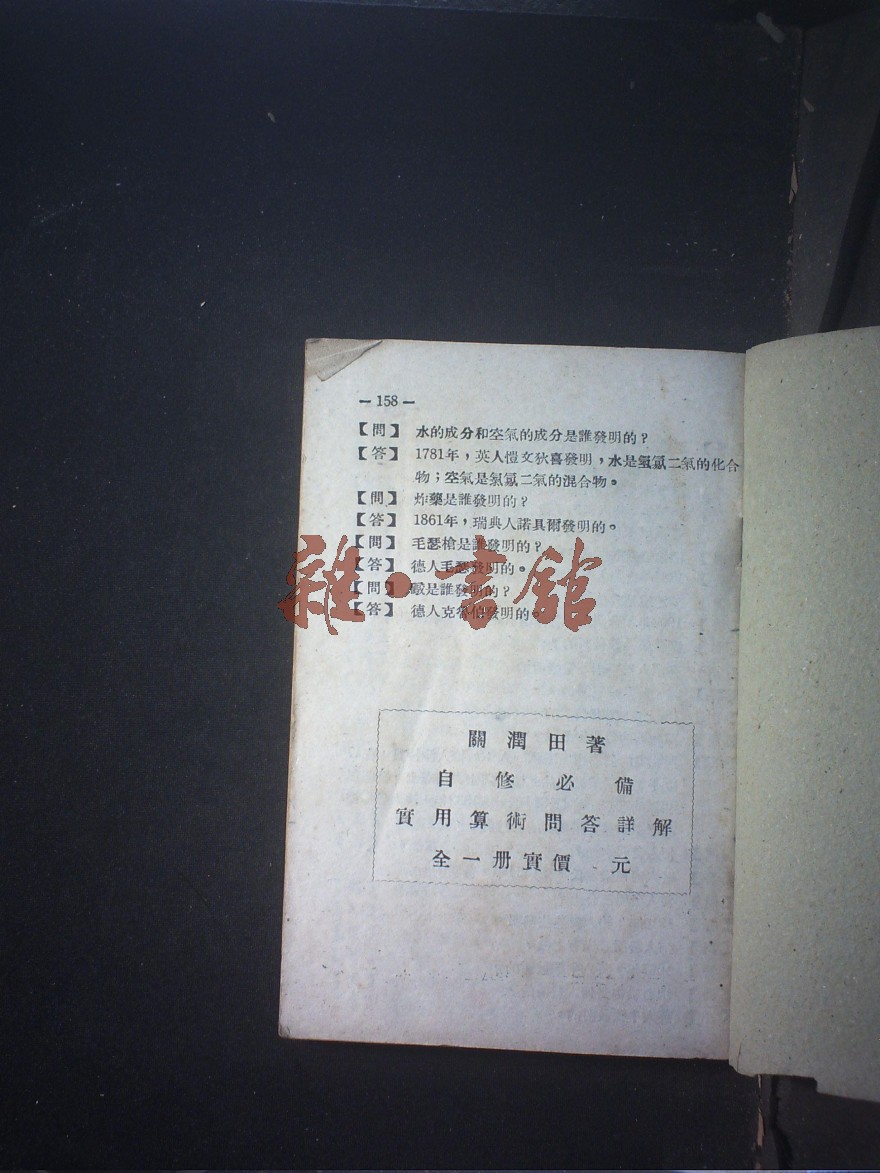 — 158 —
【問】 水的成分和空氣的成分是誰發明的？
【答】 1781年，英人愷文狄喜發明，水是氫氯二氣的化合
物；空氣是氮氯二氣的混合物。
【問】 炸藥是誰發明的？
【答】 1861年，瑞典人諾具爾發明的。
【問】 毛瑟槍是誰發明的？
【答】 德人毛瑟發明的。
【問】 礮是誰發明的？
【答】 德人克魯伯發明的。
雜·書館
關潤田著
自修必備
實用算術問答詳解
全一册實價 元